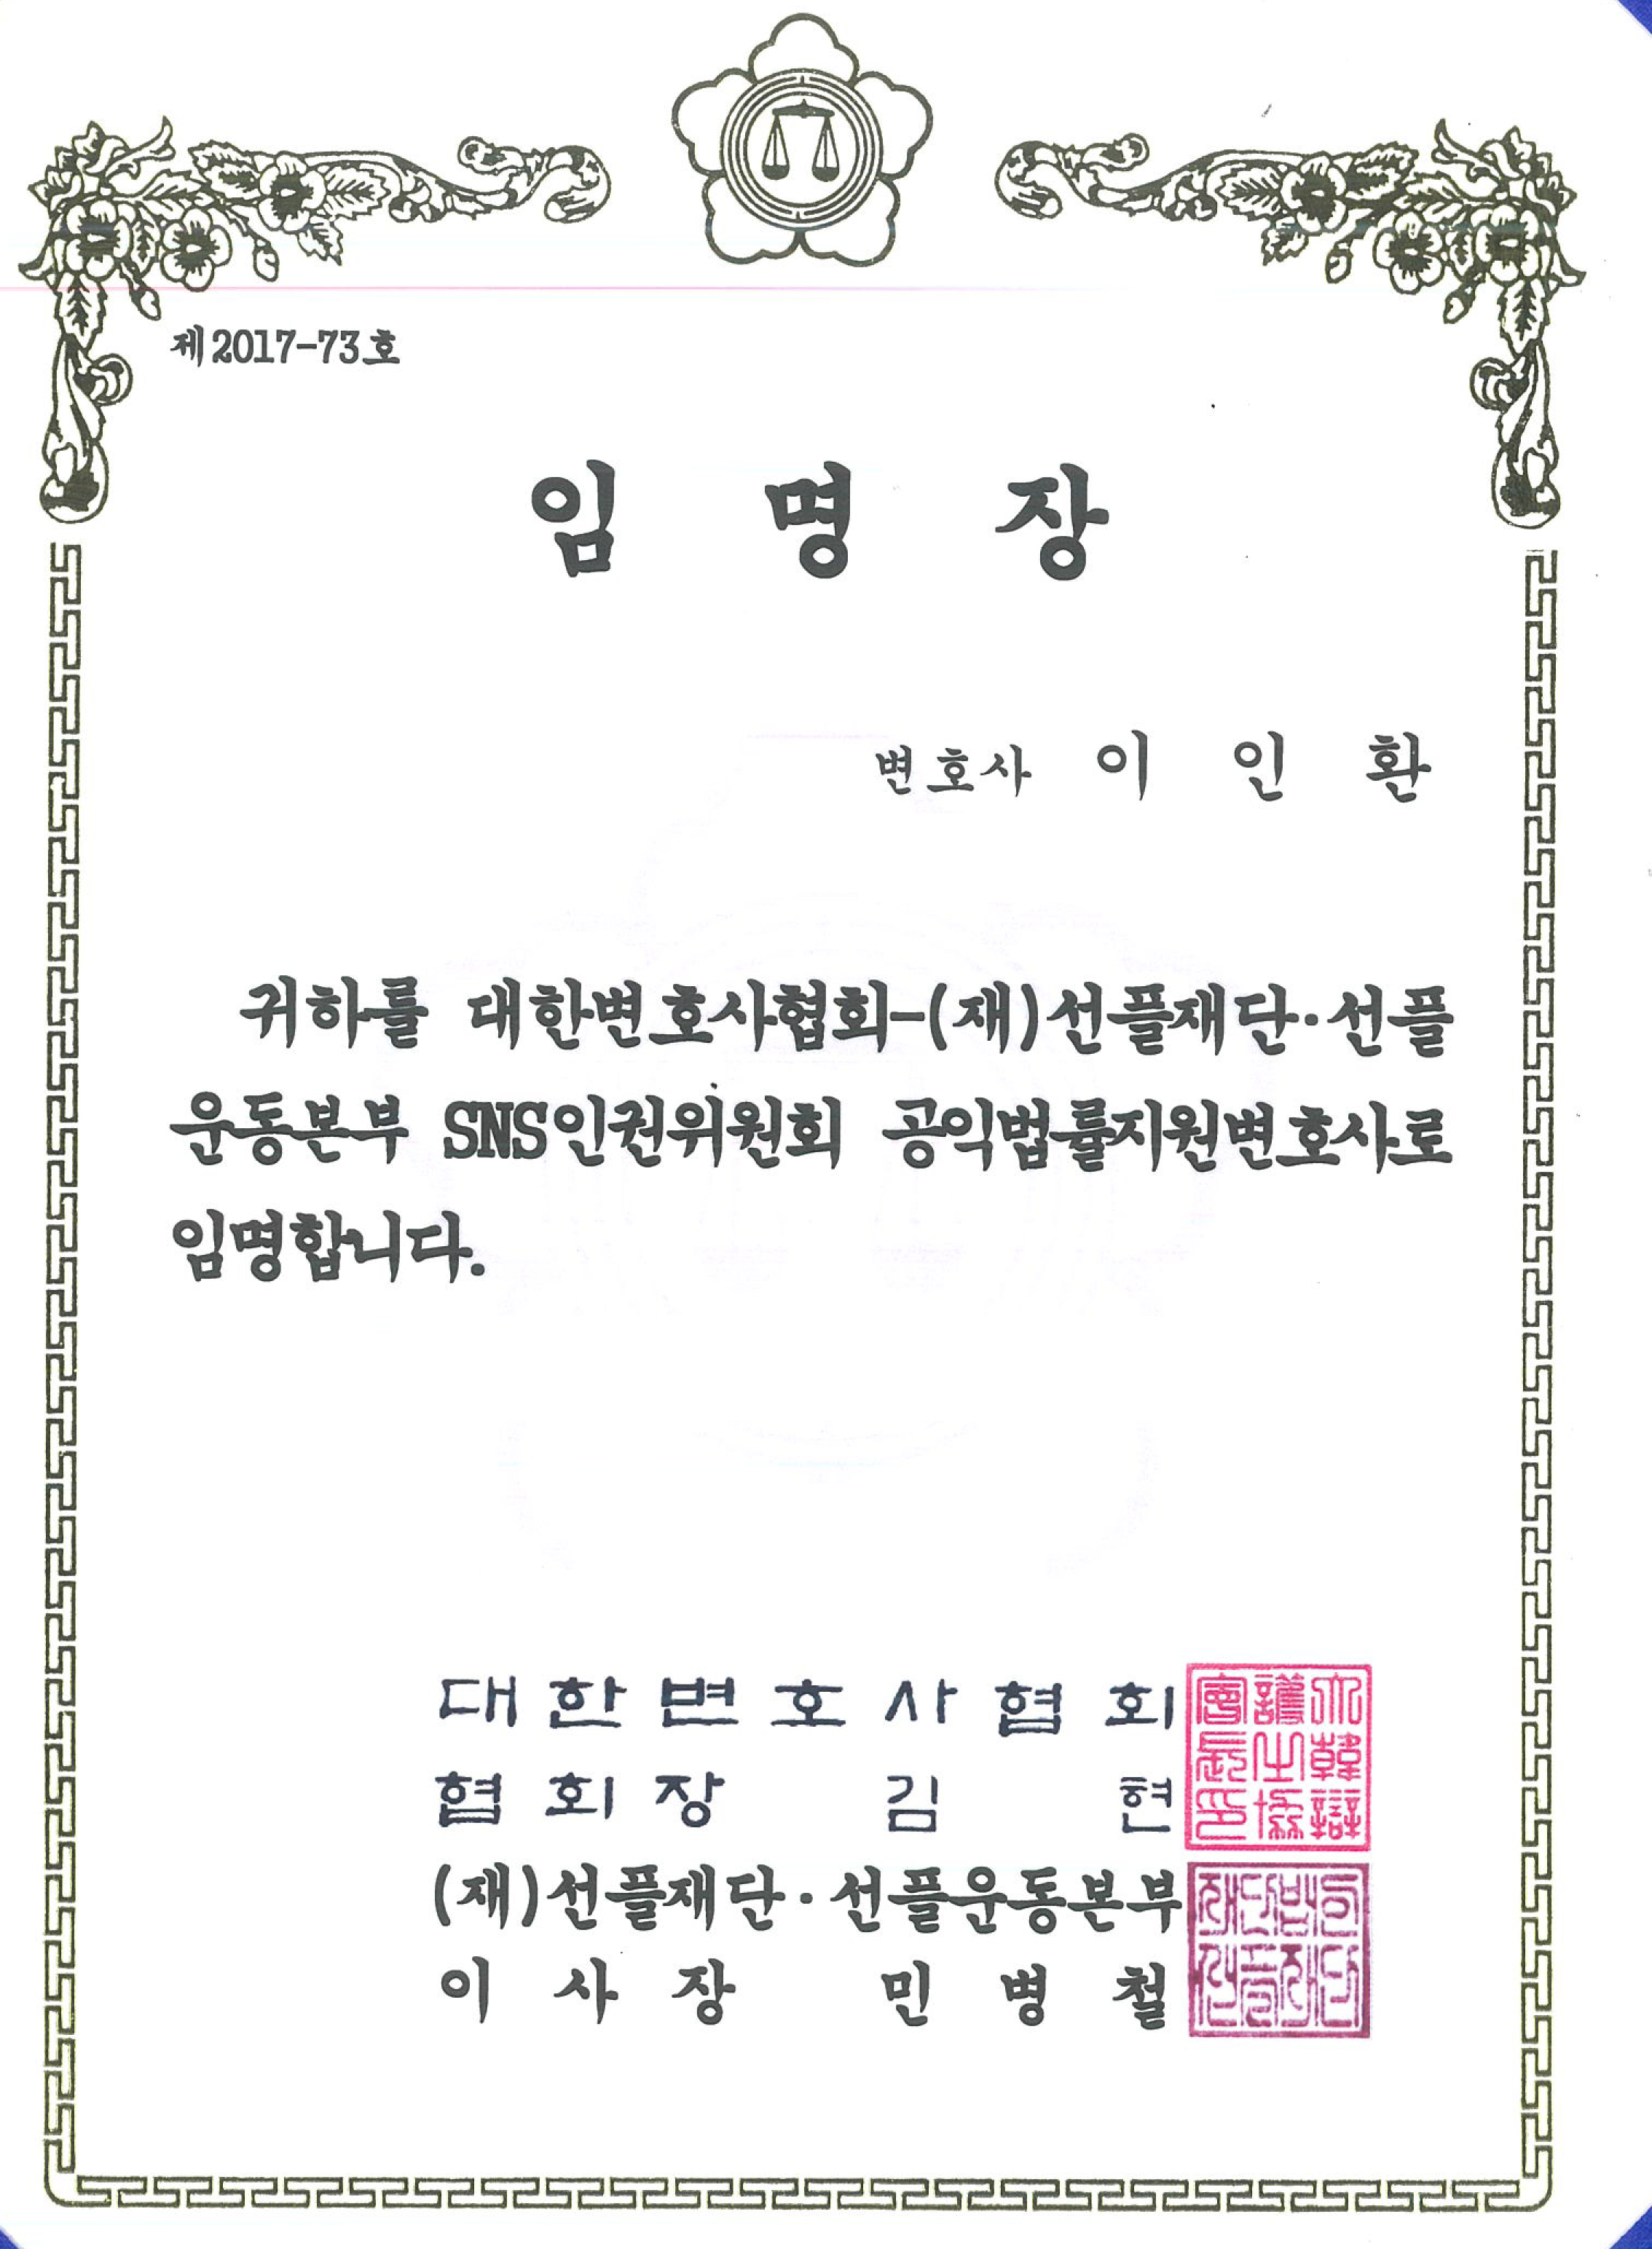 제2017-73호
임 명 장
변호사 이 인 환
귀하를 대한변호사협회-(재)선플재단·선플
운동본부 SNS인권위원회 공익법률지원변호사로
임명합니다.
대한변호사협회
협회장 김 현
(재)선플재단·선플운동본부
이 사 장 민 병 철